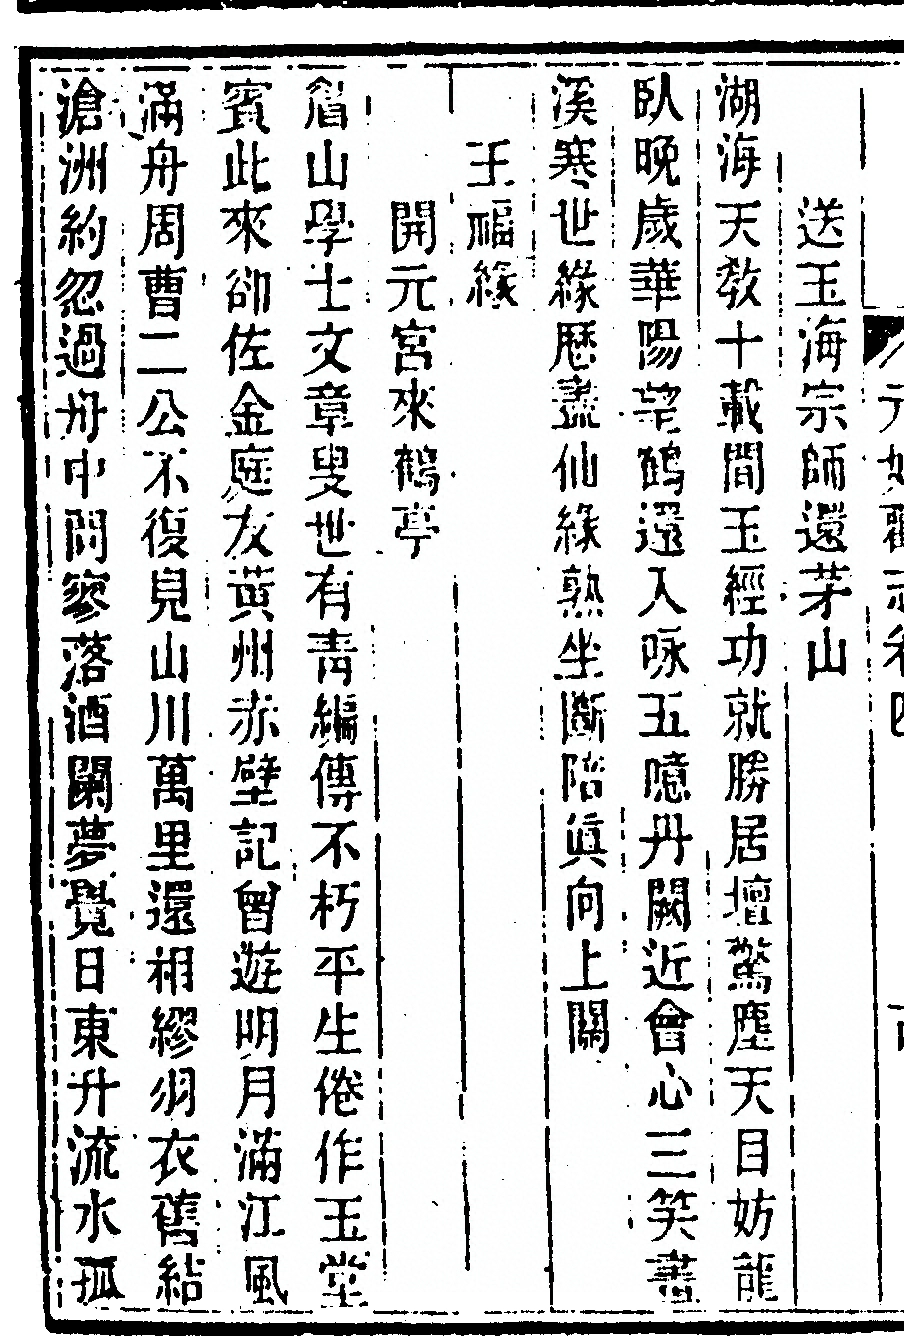 元妙觀志卷四
送玉海宗師還茅山
湖海天教十載間玉經功就勝居壇驚塵天目妨龍
臥晚歲華陽望鶴還人咏五噫丹闕近會心三笑畫
溪寒世緣歷盡仙緣熟坐斷陪眞向上關
王福緣
開元宮來鶴亭
眉山學士文章叟世有靑編傳不朽平生倦作玉堂
賓此來卻佐金庭友黃州赤壁記曾遊明月滿江風
滿舟周曹二公不復見山川萬里還相繆羽衣舊結
滄洲約忽過舟中問寥落酒闌夢覺日東升流水孤